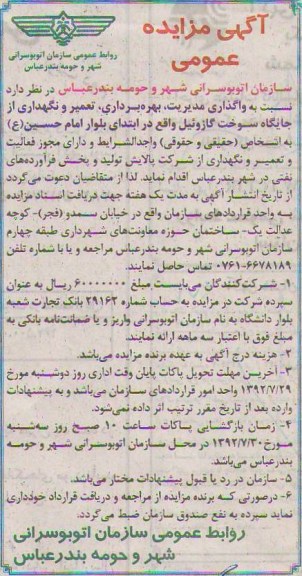 آگهی مزایده
عمومی
روابط عمومی سازمان اتوبوسرانی
شهر و حومه بندرعباس
سازمان اتوبوسرانی شهر و حومه بندرعباس در نظر دارد
نسبت به واگذاری مدیریت، بهره‌برداری، تعمیر و نگهداری از
جایگاه سوخت گازوئیل واقع در ابتدای بلوار امام حسین(ع)
به اشخاص (حقیقی و حقوقی) واجدالشرایط و دارای مجوز فعالیت
و تعمیر و نگهداری از شرکت پالایش تولید و پخش فرآورده‌های
نفتی در شهر بندرعباس اقدام نماید. لذا از متقاضیان دعوت می‌گردد
از تاریخ انتشار آگهی به مدت یک هفته جهت دریافت اسناد مزایده
به واحد قراردادهای سازمان واقع در خیابان سمدو (فجر)- کوچه
عدالت یک- ساختمان حوزه معاونت‌های شهرداری طبقه چهارم
سازمان اتوبوسرانی شهر و حومه بندرعباس مراجعه و یا با شماره تلفن
۰۷۶۱-۶۶۷۸۱۸۹ تماس حاصل نمایند.
۱- شرکت‌کنندگان می‌بایست مبلغ ۶۰۰۰۰۰۰۰ ریال به عنوان
سپرده شرکت در مزایده به حساب شماره ۲۹۱۶۲ بانک تجارت شعبه
بلوار دانشگاه به نام سازمان اتوبوسرانی واریز و یا ضمانت‌نامه بانکی به
مبلغ فوق با اعتبار سه ماهه ارائه نمایند.
۲- هزینه درج آگهی به عهده برنده مزایده می‌باشد.
۳- آخرین مهلت تحویل پاکات پایان وقت اداری روز دوشنبه مورخ
۱۳۹۲/۷/۲۹ واحد امور قراردادهای سازمان می‌باشد و به پیشنهادات
وارده بعد از تاریخ مقرر ترتیب اثر داده نمی‌شود.
۴- زمان بازگشایی پاکات ساعت ۱۰ صبح روز سه‌شنبه
مورخ ۱۳۹۲/۷/۳۰ در محل سازمان اتوبوسرانی شهر و حومه
بندرعباس می‌باشد.
۵- سازمان در رد یا قبول پیشنهادات مختار می‌باشد.
۶- درصورتی که برنده مزایده از مراجعه و دریافت قرارداد خودداری
نماید سپرده به نفع صندوق سازمان ضبط می‌گردد.
روابط عمومی سازمان اتوبوسرانی
شهر و حومه بندرعباس